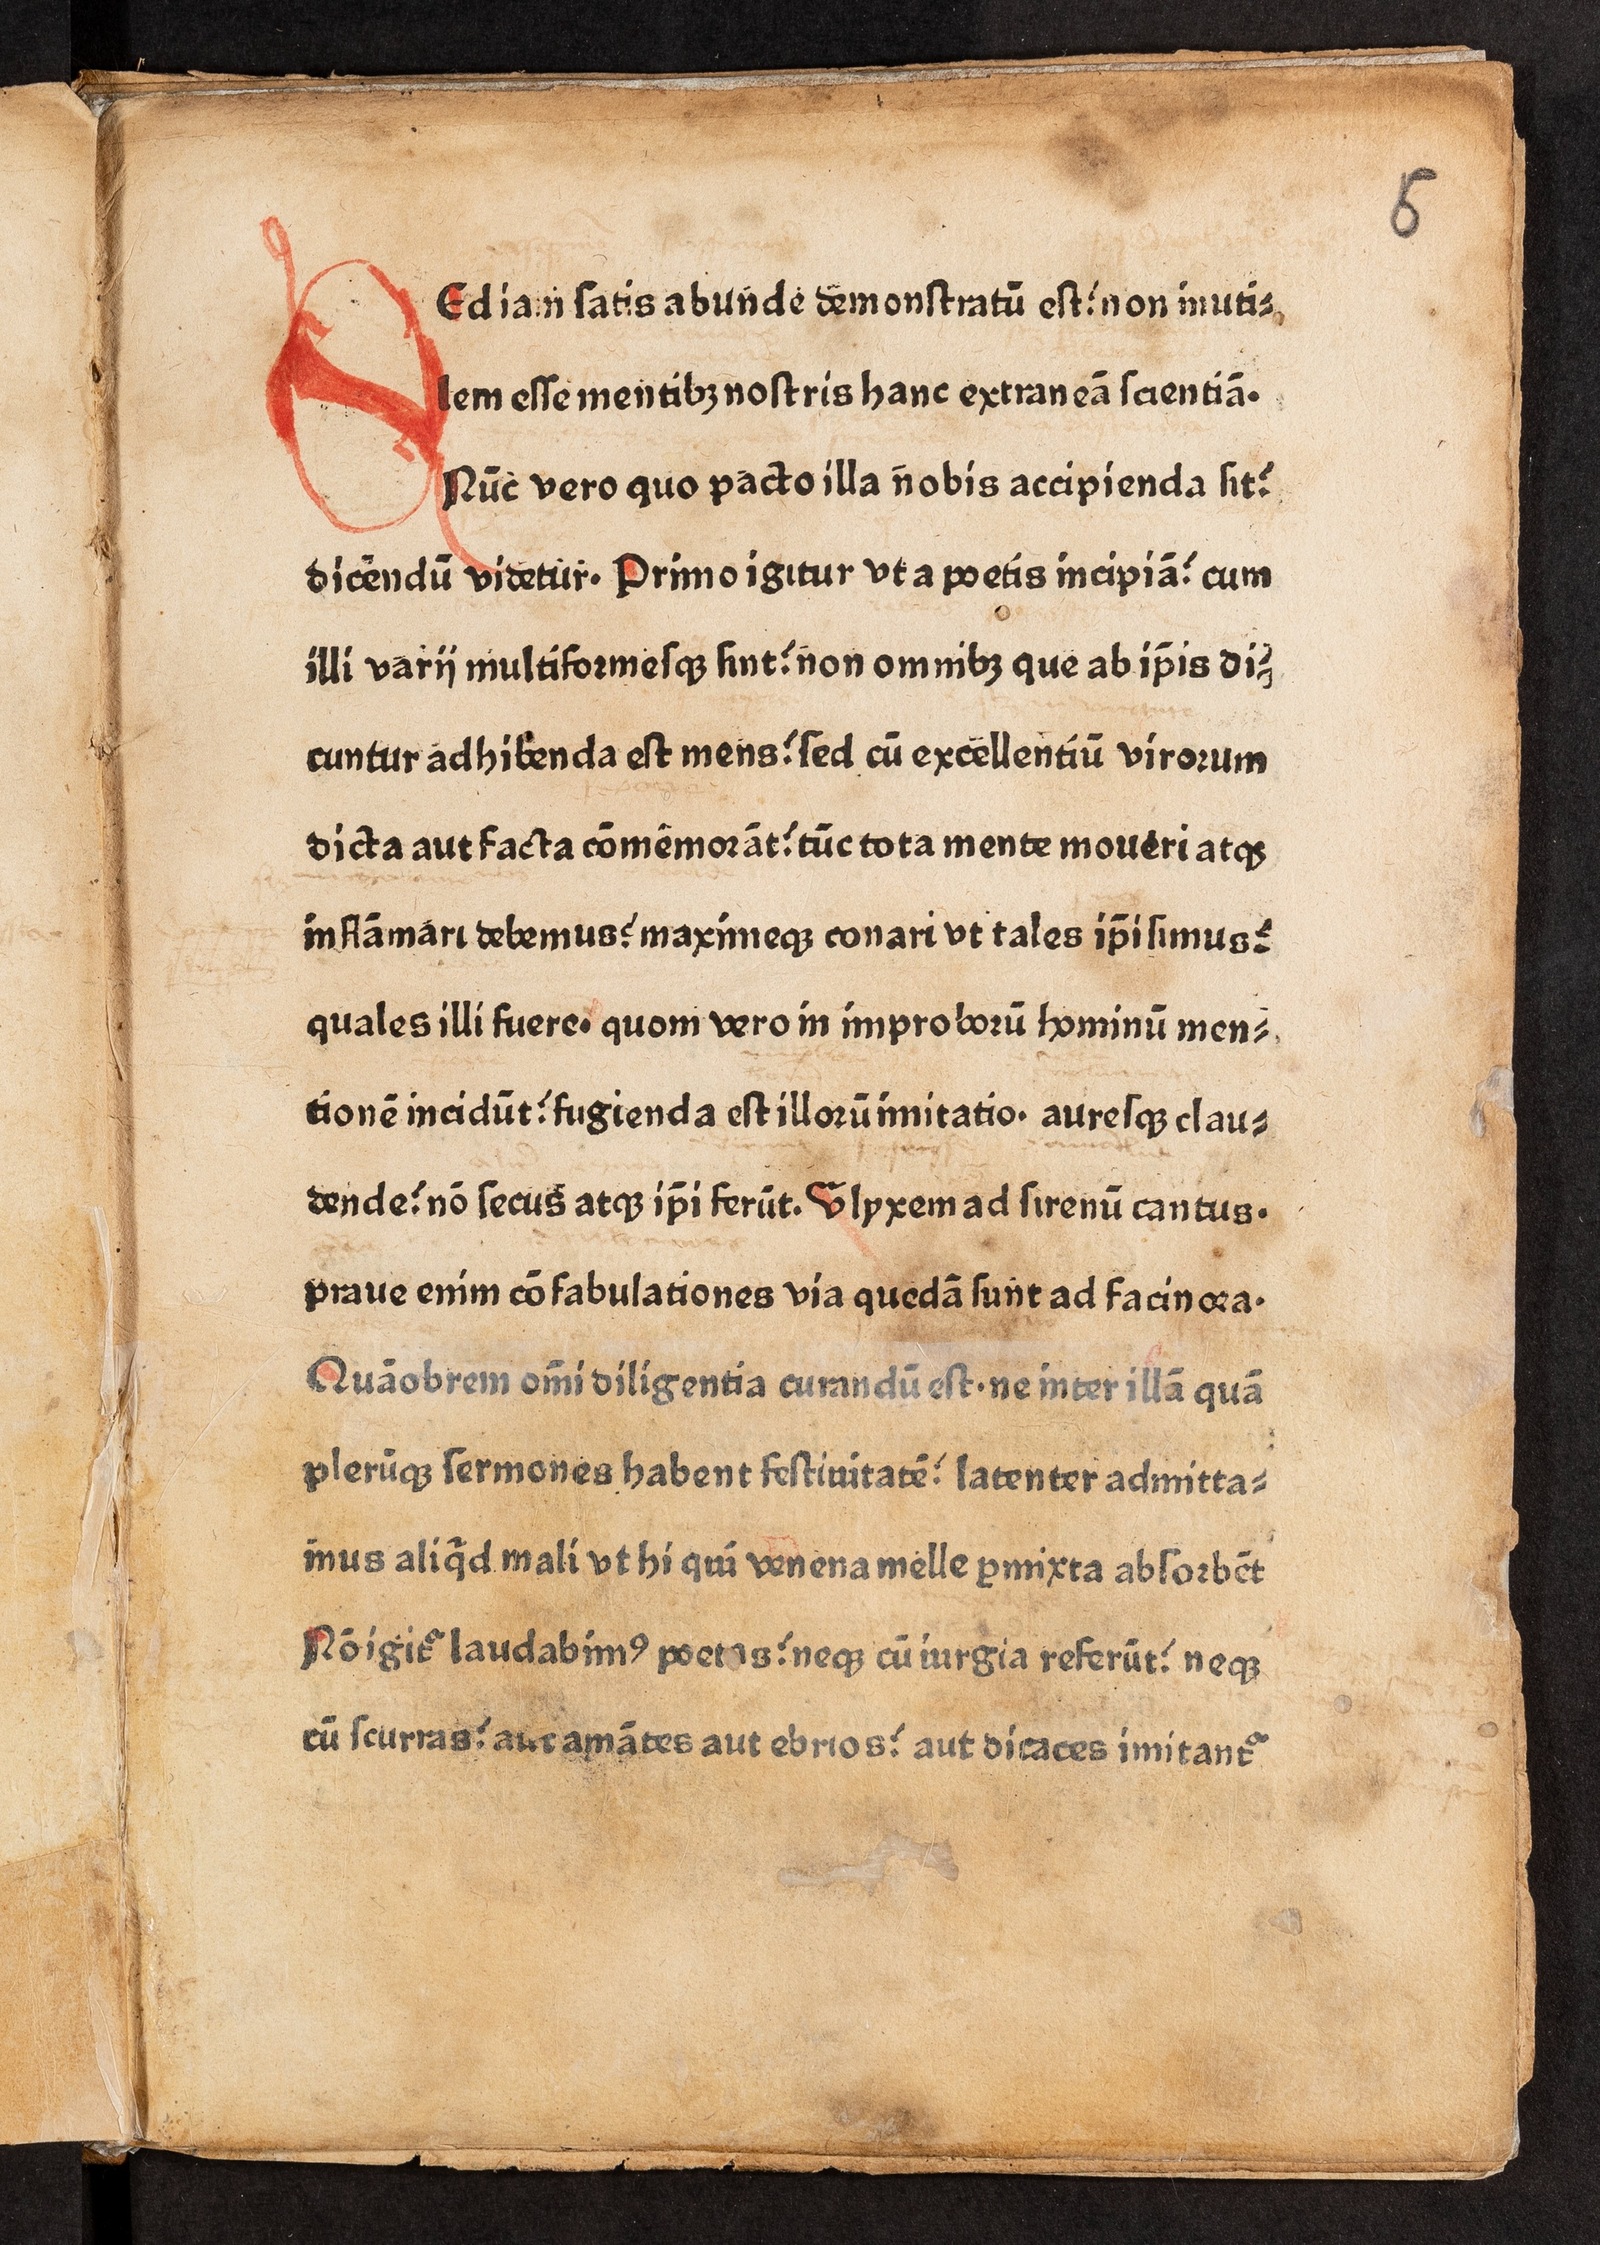 6
SEd iam ſatis abunde demonſtratū eſt: non inuti-
lem eſſe mentibꝫ noſtris hanc extraneā ſcientiā.
Nūc vero quo pacto illa nobis accipienda ſit:
dicendū videtur. Primo igitur vt a poetis incipiā: cum
illi varij multiformeſqꝫ ſint: non omnibꝫ que ab ip̄is di-
cuntur adhibenda eſt mens: ſed cū excellentiū virorum
dicta aut facta cōmēmorāt: tūc tota mente moueri atqꝫ
inflāmari debemus: maximeqꝫ conari vt tales ip̄i ſimus:
quales illi fuere. quom vero in improborū hominū men-
tionē incidūt: fugienda eſt illorū imitatio. aureſqꝫ clau-
dende: nō ſecus atqꝫ ip̄i ferūt. Vlyxem ad ſirenū cantus.
praue enim cōfabulationes via quedā ſunt ad facinora.
Quāobrem om̄i diligentia curandū eſt. ne inter illā quā
plerūqꝫ ſermones habent feſtiuitatē: latenter admitta-
mus aliq̄d mali vt hi qui venena melle ꝑmixta abſorbēt
Nō igit᷑ laudabimꝰ poetas: neqꝫ cū iurgia referūt: neqꝫ
cū ſcurras: aut amātes aut ebrios: aut dicaces imitant᷑